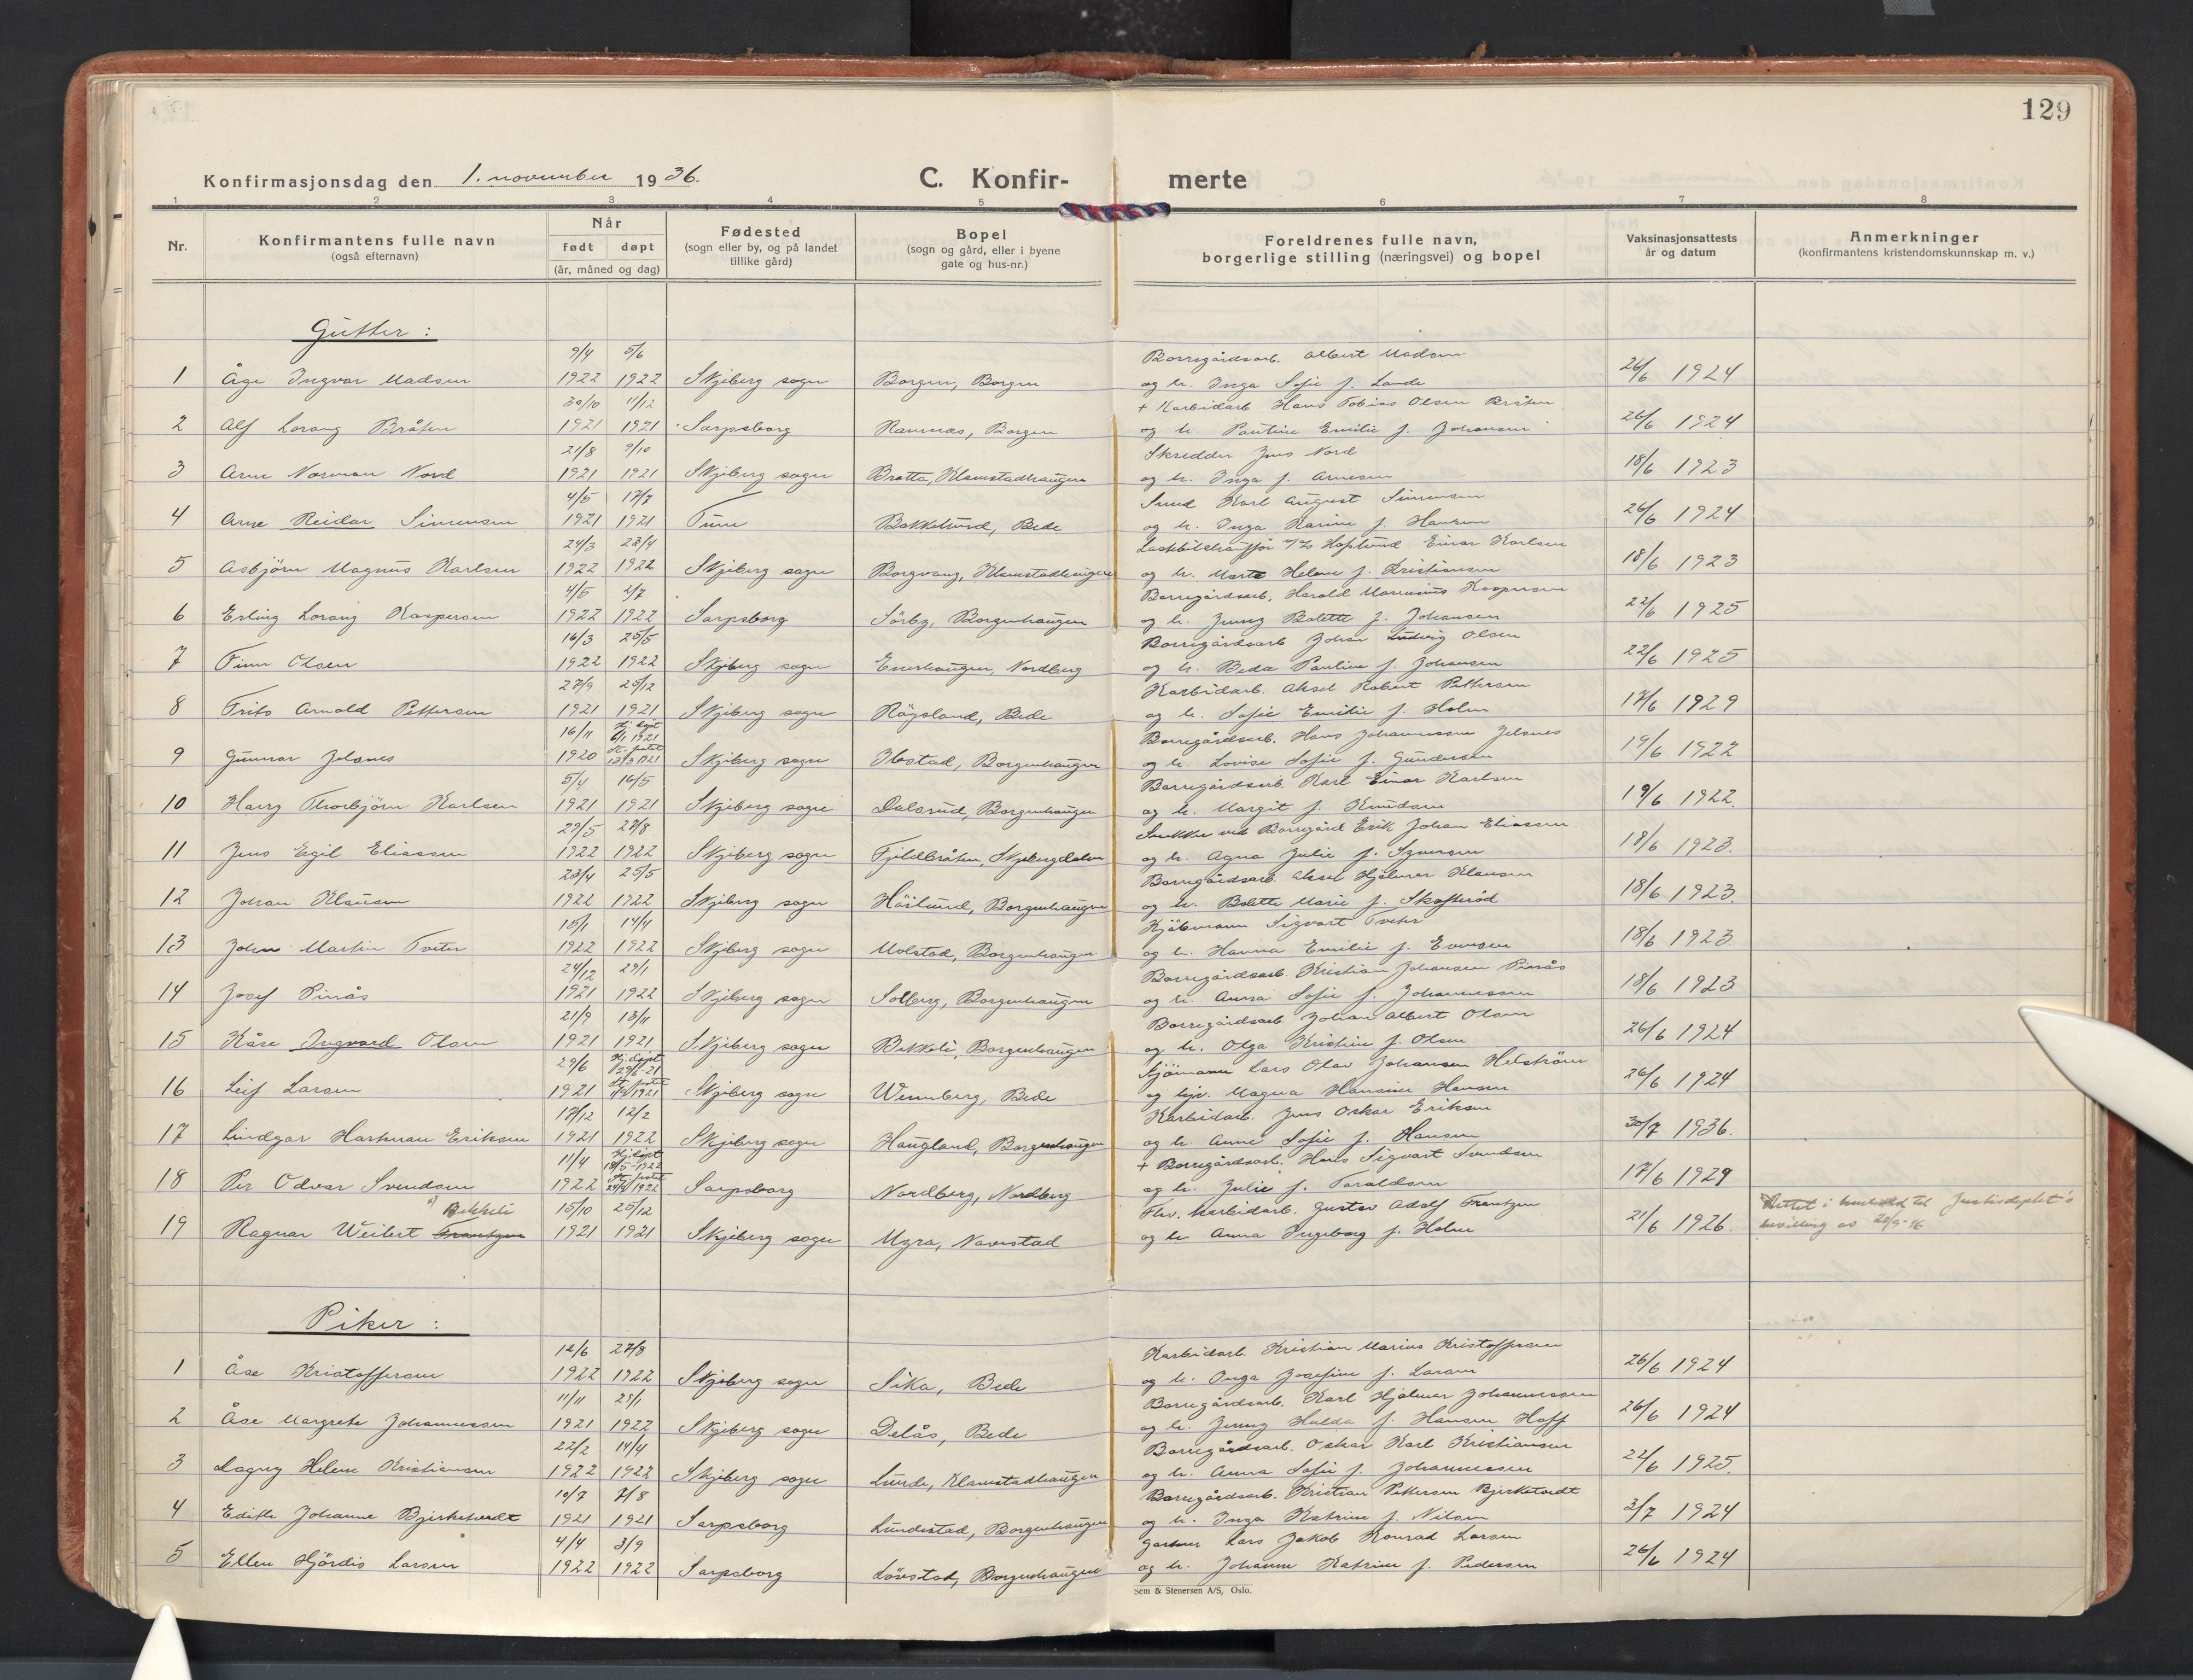 129
Konfirmasjonsdag den 1. november 1936.
C. Konfir- merte
1 2 3 4 5 6 7 8
Nr.
Konfirmantens fulle navn
(også efternavn)
Når
født døpt
(år, måned og dag)
Fødested
(sogn eller by, og på landet
tillike gård)
Bopel
(sogn og gård, eller i byene
gate og hus-nr.)
Foreldrenes fulle navn,
borgerlige stilling (næringsvei) og bopel
Vaksinasjonsattests
år og datum
Anmerkninger
(konfirmantens kristendomskunnskap m. v.)
Gutter :
9/4 5/6 Borregårdsarb. Albert Madsen
1 Åge Ingvar Madsen 1922 1922 Skjeberg sogn Borgen, Borgen og h. Inga Sofie f. Lande 26/6 1924
30/10 11/12 + Karbidarb. Hans Tobias Olsen Bråten
2 Alf Lorang Bråten 1921 1921 Sarpsborg Ramnæs, Borgen og h. Pauline Emilie f. Johansen 26/6 1924
21/8 9/10 Skredder Jens Nord
3 Arne Norman Nord 1921 1921 Skjeberg sogn Bratta, Klavestadhaugen og h. Inga f. Arnesen 18/6 1923
4/5 17/7 Smed Karl August Simensen
4 Arne Reidar Simensen 1921 1921 Tune Bakkelund, Bede og h. Inga Karine f. Hansen 26/6 1924
24/3 23/4 Lastebilchauffør Haslund Einar Karlsen
5 Asbjörn Magnus Karlsen 1922 1922 Skjeberg sogn Borgvang, Klavestadhaugen og h. Marte Helene f. Kristiansen 18/6 1923
4/5 2/7 Borregårdsarb. Harald Marinius Kaspersen
6 Erling Lorang Kaspersen 1922 1922 Sarpsborg Sörby, Borgenhaugen og h. Jenny Bolette f. Johansen 22/6 1925
16/3 25/5 Borregårdsarb. Johan Ludvig Olsen
7 Finn Olsen 1922 1922 Skjeberg sogn Enerhaugen, Nordberg og h. Beda Pauline f. Johansen 22/6 1925
27/9 25/12 Karbidarb. Aksel Robert Pettersen
8 Frits Arnold Pettersen 1921 1921 Skjeberg sogn Röysland, Bede og h. Sofie Emilie f. Holm 17/6 1929
16/11 Hj. døpt 6/1 1921 Borregårdsarb. Hans Johannessen Jelsnes
9 Gunnar Jelsnes 1920 1921 Skjeberg sogn Ilestad, Borgenhaugen og h. Lovise Sofie f. Gundersen 19/6 1922
5/4 16/5 Borregårdsarb. Karl Einar Karlsen
10 Harry Thorbjörn Karlsen 1921 1921 Skjeberg sogn Dalsrud, Borgenhaugen og h. Margit f. Knudsen 19/6 1922.
29/5 27/8 ved Borregård Erik Johan Eliassen
11 Jens Egil Eliassen 1922 1922 Skjeberg sogn Fjeldbråten, Skjebergdalen og h. Agna Julie f. Syversen 18/6 1923.
23/4 25/5 Borregårdsarb. Aksel Hjalmar Klausen
12 Johan Klausen 1922 1922 Skjeberg sogn Höilund, Borgenhaugen og h. Bolette Marie f. Skofteröd 18/6 1923.
15/1 14/4 Kjöbmann Sigvart Tveter
13 John Martin Tveter 1922 1922 Skjeberg sogn Molstad, Borgenhaugen og h. Hanna Emilie f. Evensen 18/6 1923
24/12 29/1 Borregårdsarb. Kristian Johansen Pinås
14 Josef Pinås 1921 1922 Skjeberg sogn Solberg, Borgenhaugen og h. Anna Sofie f. Johannessen 18/6 1923
21/9 13/11 Borregårdsarb. Johan Albert Olsen
15 Kåre Ingvard Olsen 1921 1921 Skjeberg sogn Bekkeli, Borgenhaugen og h. Olga Kristine f. Olsen 26/6 1924
29/6 Hj. døpt 29/6 21 Sjömann Lars Olav Johansen Helström
16 Leif Larsen 1921 1921 Skjeberg sogn Wennberg, Bede og Magna Hansine Hansen 26/6 1924
17/12 12/2 Karbidarb. Jens Oskar Eriksen
17 Lindgar Hartman Eriksen 1921 1922 Skjeberg sogn Haugland, Borgenhaugen og h. Anne Sofie f. Hansen 30/7 1936.
11/4 Hj. døpt 18/5-1922 + Borregårdsarb. Hans Sigvart Svendsen
18 Per Odvar Svendsen 1922 1922 Sarpsborg Nordberg, Nordberg og h. Julie f. Toraldsen 17/6 1929
Bekkeli 15/10 25/12 Karbidarb. Gustav Adolf Frantzen Rettet i henhold til Justisdeptet's
19 Ragnar Weibert Frantzen 1921 1921 Skjeberg sogn Myra, Navestad og h. Anna Ingeborg f. Holm 21/6 1926. bevilling av 20/9-46
Piker :
12/6 27/8 Karbidarb. Kristian Marius Kristoffersen
1 Åse Kristoffersen 1922 1922 Skjeberg sogn Sika, Bede og h. Onga Josefine f. Larsen 26/6 1924
11/11 29/1 Borregårdsarb. Karl Hjalmar Johannessen
2 Åse Margrete Johannessen 1921 1922 Skjeberg sogn Delås, Bede og h. Jenny Hulda f. Hansen Hoff 26/6 1924
22/2 14/4 Borregårdsarb. Oskar Karl Kristiansen
3 Dagny Helene Kristiansen 1922 1922 Skjeberg sogn Lunde, Klavestadhaugen og h. Anna Sofie f. Johannessen 22/6 1925.
10/7 7/8 Borregårdsarb. Kristian Pettersen Bjerketvedt
4 Edith Johanne Bjerketvedt 1921 1921 Sarpsborg Lundestad, Borgenhaugen og h. Inga Katrine f. Nilsen 3/7 1924
4/4 3/9 Gartner Lars Jakob Konrad Larsen
5 Ellen Hjördis Larsen 1922 1922 Sarpsborg Lövestad, Borgenhaugen og h. Johanne Katrine f. Pedersen 26/6 1924
Sem & Stenersen A/S, Oslo.